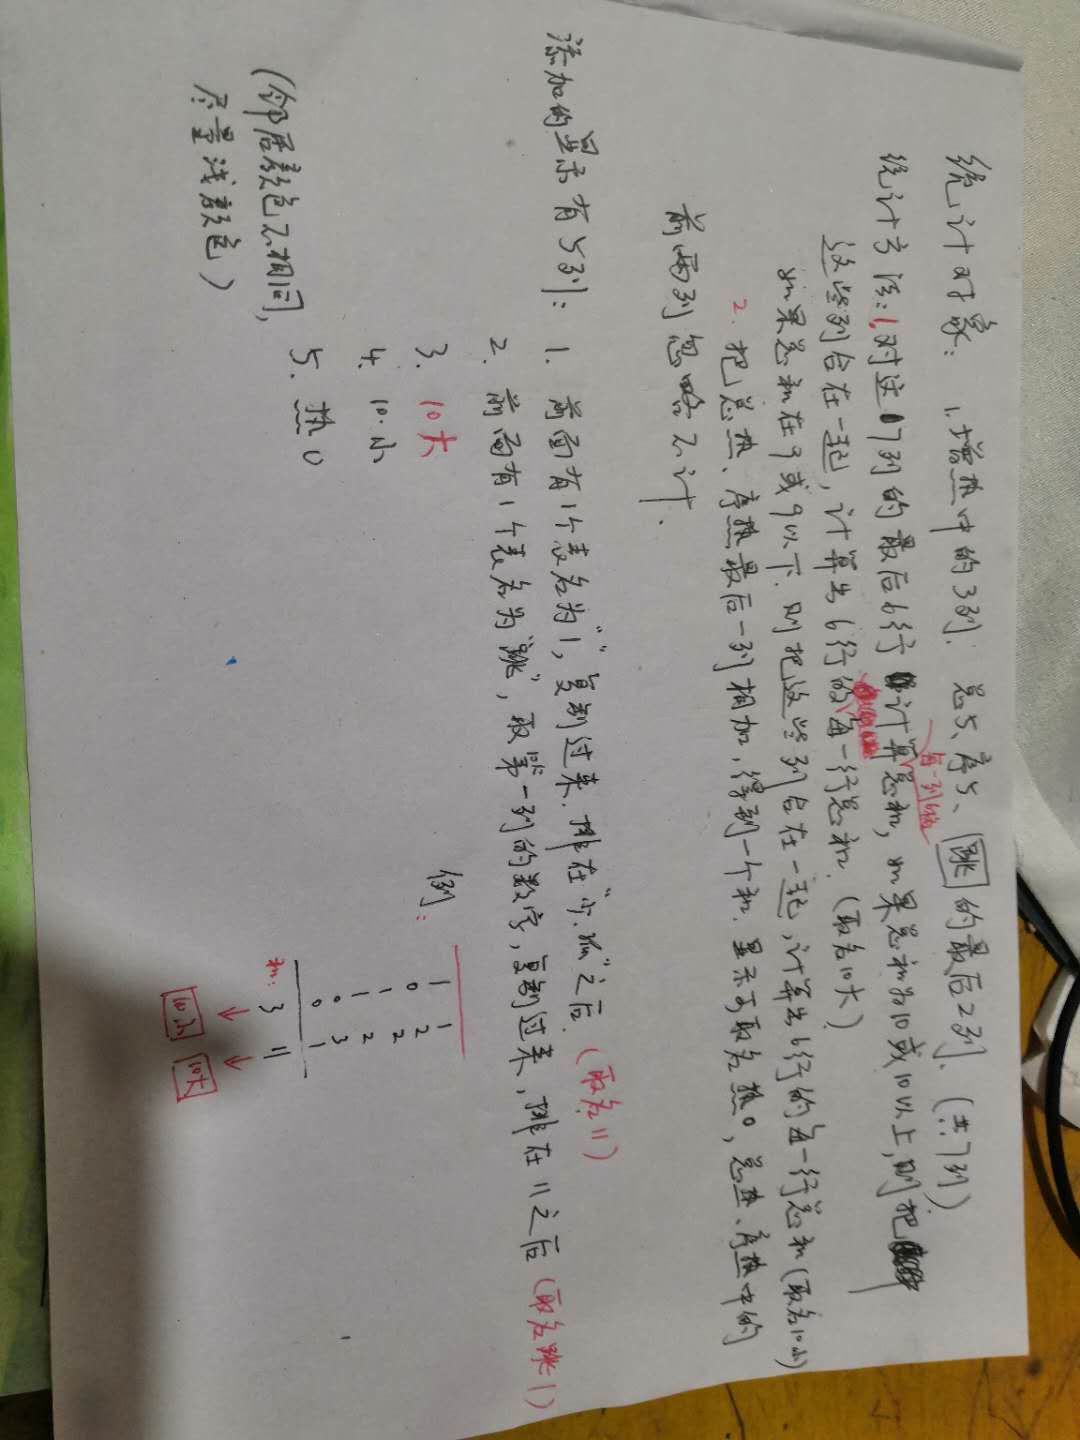 统计对象： 1.增热中的3列. 总5、序5、跳的最后2列.（共7列）.
每一列的
统计方法：1.对这7列的最后6行计算总和，如果总和为10或10以上，则把
这些列合在一起，计算出6行的每一行总和.（取名10大）
如果总和在9或9以下.则把这些列合在一起，计算出6行的每一行总和（取名10小）
2.把总热、序热最后一列相加，得到一个和.显示可取名热0，总热、序热中的
前两列忽略不计.
添加的显示有5列： 1. 前面有1个表名为"1"，复制过来.排在"小.孤"之后.（取名11）
2. 前面有1个表名为"跳"，取第一列的数字，复制过来，排在11之后（取名跳1）
3. 10大
4. 10小
5. 热0
（邻居颜色不相同，
尽量浅颜色）
例：
1 1
0 2
1 2
1 2
0 3
0 1
和: 3 11
↓ ↓
10小 10大